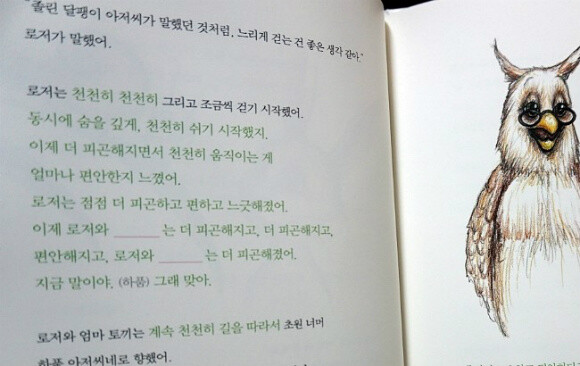 "졸린 달팽이 아저씨가 말했던 것처럼, 느리게 걷는 건 좋은 생각 같아."
로저가 말했어.
로저는 천천히 천천히 그리고 조금씩 걷기 시작했어.
동시에 숨을 깊게, 천천히 쉬기 시작했지.
이제 더 피곤해지면서 천천히 움직이는 게
얼마나 편안한지 느꼈어.
로저는 점점 더 피곤하고 편하고 느긋해졌어.
이제 로저와 ______ 는 더 피곤해지고, 더 피곤해지고,
편안해지고, 로저와 ______ 는 더 피곤해졌어.
지금 말이야. (하품) 그래 맞아.
로저와 엄마 토끼는 계속 천천히 길을 따라서 초원 너머
하품 아저씨네로 향했어.